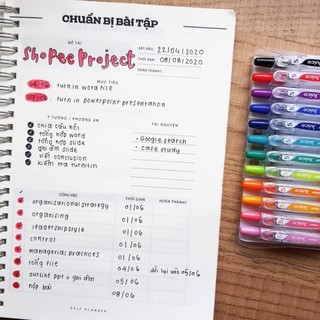 CHUẨN BỊ BÀI TẬP
ĐỀ TÀI
Shopee Project
BẮT ĐẦU: 22/04/2020
THỜI HẠN: 08/08/2020
HOÀN THÀNH:
MỤC TIÊU
turn in word file
turn in powerpoint presentation
Ý TƯỞNG / PHƯƠNG ÁN
TÀI NGUYÊN
chia câu hỏi
tổng hợp word
tổng hợp slide
ghi âm slide
viết conclusion
kiểm tra turnitin
• Google search
• case study
CÔNG VIỆC THỜI GIAN HOÀN THÀNH?
organisational strategy 01/06
organising 01/06
leadership style 01/06
control 01/06
managerial practices 01/06
tổng file 04/06 dời lại vào 05/06
outline ppt + ghi âm 05/06
nộp bài 08/06
SELF PLANNER
Juice